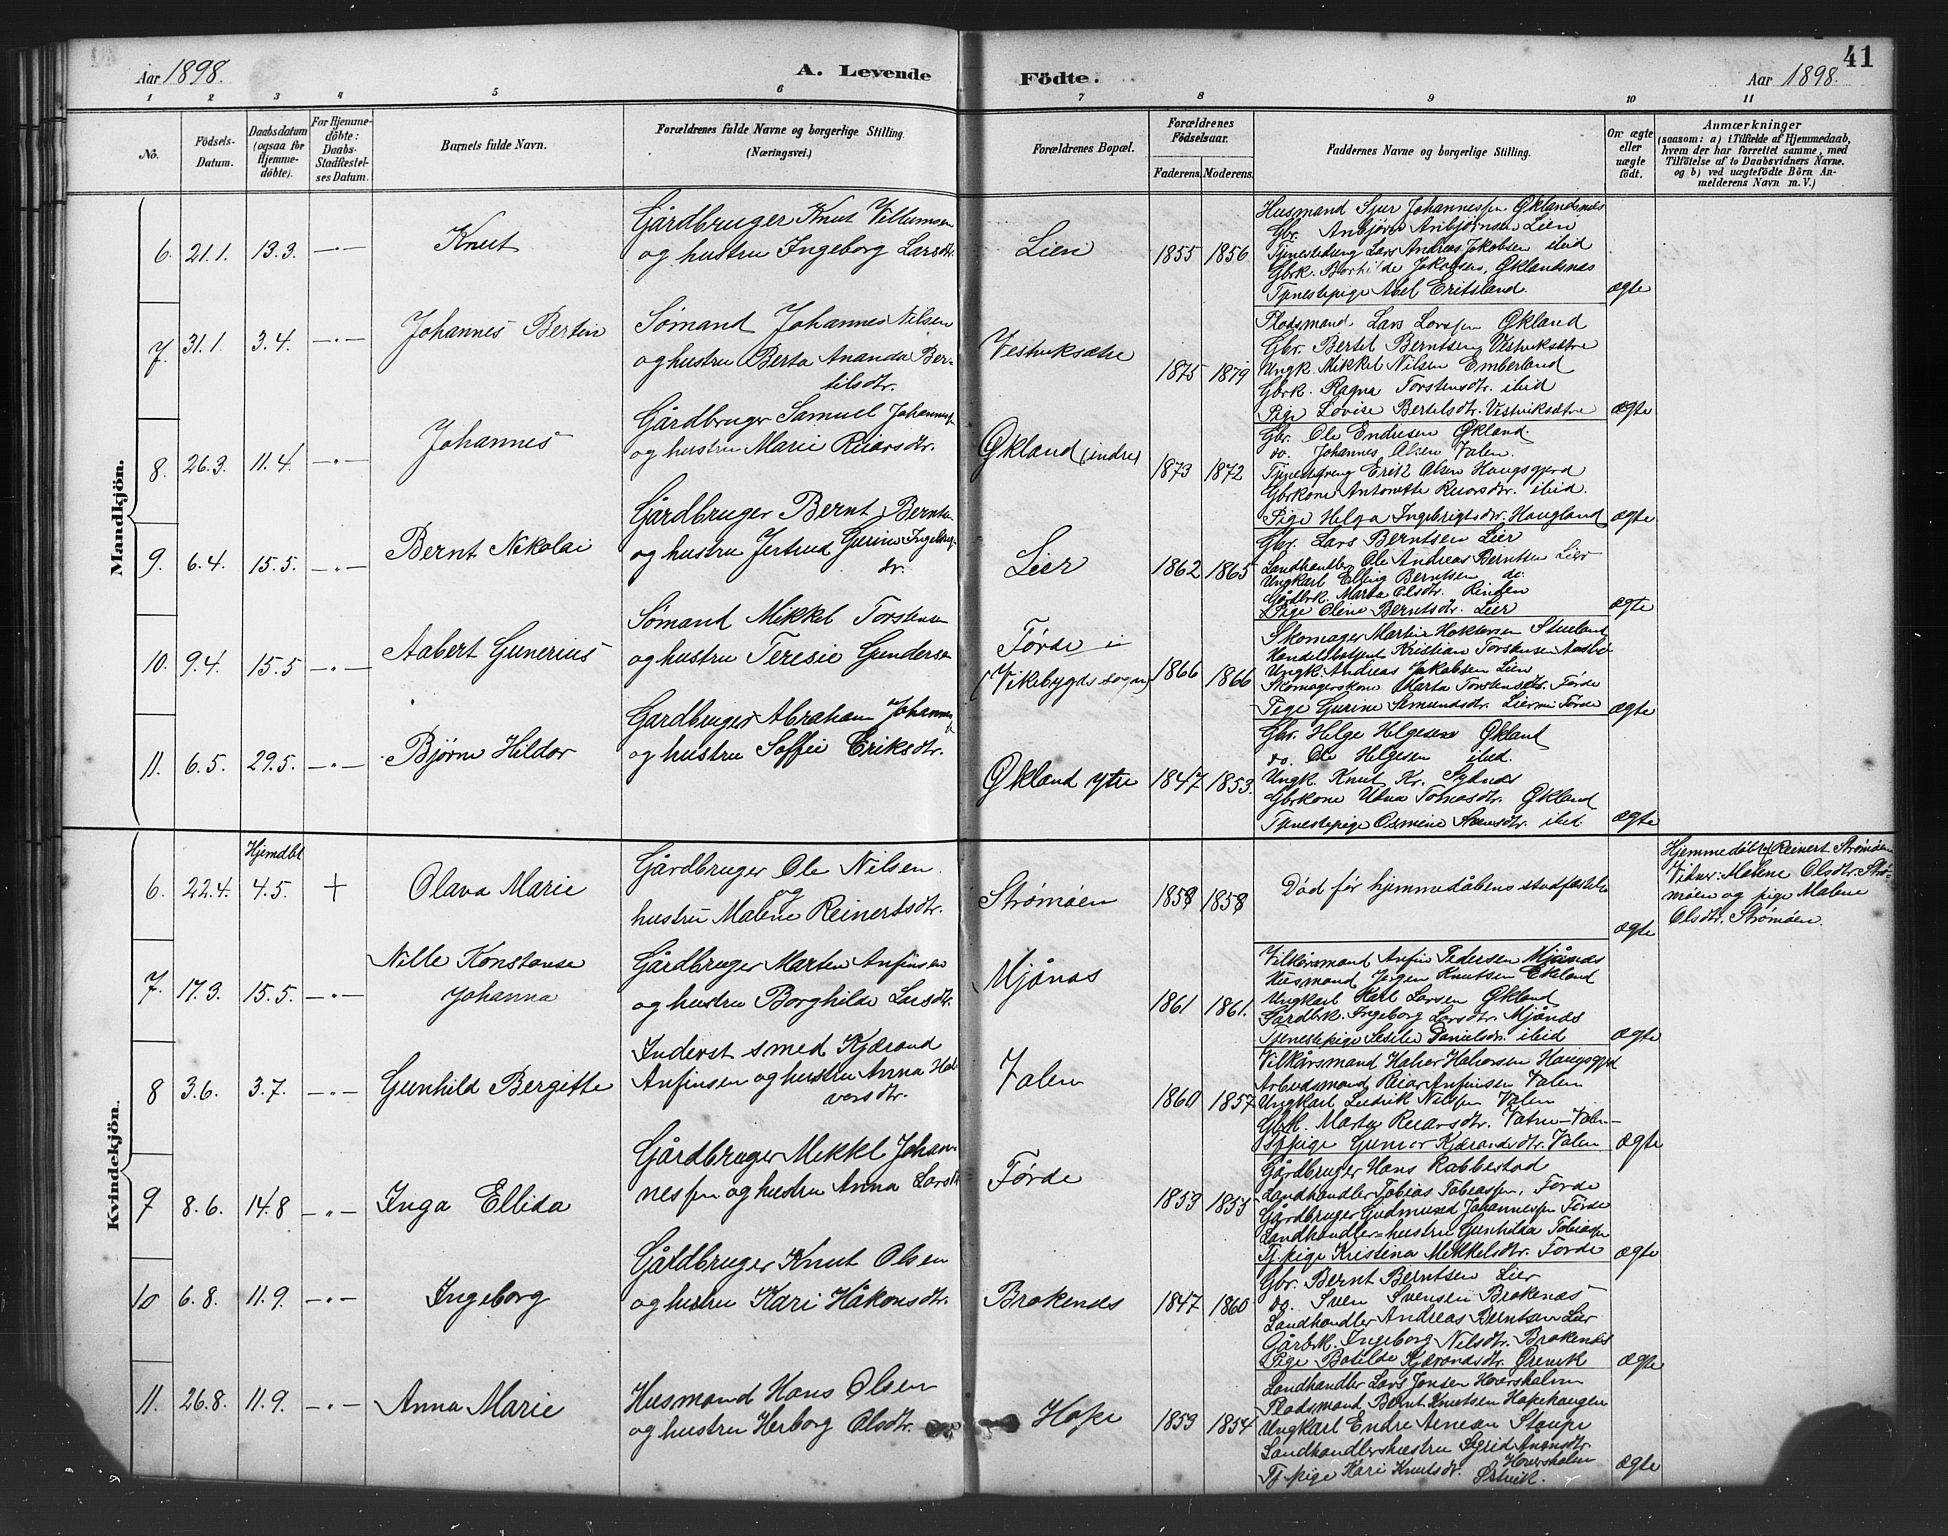 Aar 1898.
A. Levende
Födte.
41
Aar 1898.
1 2 3 4 5 6 7 8 9 10 11
No.
Födsels-
Datum.
Daabsdatum
(ogsaa for
Hjemme-
döbte).
For Hjemme-
döbte:
Daabs-
Stadfæstel-
ses Datum.
Barnets fulde Navn.
Forældrenes fulde Navne og borgerlige Stilling.
(Næringsvei.)
Forældrenes Bopæl.
Forældrenes
Födselsaar.
Faderens. Moderens.
Faddernes Navne og borgerlige Stilling.
Om ægte
eller
uægte
født.
Anmærkninger
(saasom: a) i Tilfælde af Hjemmedaab,
hvem der har forrettet samme, med
Tilföielse af to Daabsvidners Navne.
og b) ved uægtefödte Börn An-
melderens Navn m. V.)
Mandkjön.
6. 21.1. 13.3. —„—
Knut
Gårdbruger Knut Villumsen
og hustru Ingeborg Larsdtr.
Lien
1855 1856
Husmand Sjur Johannessen Øklandsnæs
Gbr. Anbjørn Anbjørnsen Lien
Tjenestedreng Lars Andreas Jakobsen ibid
Gbrk. Borhilde Jakobsen, Øklandsnæs
Tjenestepige Abel Eritsland.
ægte
7. 31.1. 3.4. —„—
Johannes Bertin
Sømand Johannes Nilsen
og hustru Berta Ananda Ber-
tilsdtr.
Vestviksætre
1875 1879
Flodsmand Lars Larsen Økland
Gbr. Bertel Berntsen Vestviksætre
Ungk. Mikkel Nilsen Emberland
Gbrk. Ragna Torstensdtr. ibid
Pige Lovise Bertelsdtr. Vestviksætre
ægte
8. 26.3. 11.4. —„—
Johannes
Gårdbruger Samuel Johannes
og hustru Marie Reiarsdtr.
Økland (indre)
1873 1872
Gbr. Ole Endresen Økland.
do. Johannes Olsen Valen.
Tjenestedreng Erik Olsen Haugsgjerd
Gbrkone Antonette Reiarsdtr. ibid.
Pige Helga Ingebrigtsdtr. Haugland
ægte
9. 6.4. 15.5. —„—
Bernt Nikolai
Gårdbruger Bernt Bernts
og hustru Jertrud Gurine Ingebrig
dr.
Lier
1862 1865
Gbr. Lars Berntsen Lier
Landhandler Ole Andreas Berntsen Lier
Ungkarl Elling Berntsen do.
Gårdbrk. Marta Olsdtr.
Pige Oline Berntsdtr. Lier
ægte
10. 9.4. 15.5 —„—
Aabert Gunerius
Sømand Mikkel Torstense
og hustru Teresie Gunders
Førde i
(Vikebygds sogn)
1866 1866
Skomager Martin Stueland
Handelsbetjent Kristian Torstensen
Ungk. Andreas Jakobsen Lien
Skomagerskone Marta Torstensdtr. Førde
Pige Gurine Semundsdtr. Førde
ægte
11. 6.5. 29.5. —„—
Bjørn Hildor
Gardbruger Abraham Johannes
og hustru Soffie Eriksdtr.
Økland ytre
1847 1853.
Gbr. Helge Helgesen Økland
do. Ole Helgesen ibid.
Ungk. Knut Kr. Sydnes
Gbrkone Tomasdtr. Økland
Tjenestepige Osmine ibid
ægte
Kvindekjön.
Hjemdbt
6. 22.4. 4.5. +
Olava Marie
Gårdbruger Ole Nilsen.
og
hustru Malene Reinertsdtr.
Strømøen
1858 1858
Död før hjemmedåbens stadfæstelse
ægte
Hjemmedøbt af Reinert Strømøen
Vidner: Malene Olsdtr. Strø-
møen og pige Malene
Olsdtr. Strømøen.
7. 17.3. 15.5. —„—
Nille Konstanse
Johanna
Gårdbruger Marten Anfinsen
og hustru Borghilde Larsdtr.
Mjånæs
1861 1861.
Vilkårsmand Anfin Pedersen Mjånæs
Husmand Jørgen Knutsen Ekland
Ungkarl Karl Larsen Økland
Gårdbk. Ingeborg Larsdtr. Mjånæs
Tjenestepige Sesilie Danielsdtr. ibid
ægte
8 3.6. 3.7. —„—
Gunhild Bergitte
Inderst smed Kjærand
Anfinsen og hustru Anna Hal
versdtr.
Valen
1860 1857
Vilkårsmand Halvor Halvorsen Haugsgjerd
Arbeidsmand Reiar Anfinsen Valen
Ungkarl Ludvik Nilsen Valen
Gbrk. Marta Reiarsdtr. Vatne-Valen-
Gunvor Kjærandsdtr. Valen
ægte
9 8.6. 14.8 —„—
Inga Ellida
Gårdbruger Mikkl Johan-
nessen og hustru Anna Larsdtr
Førde
1859 1855
Gårdbruger Hans Rabbestad
Landhandler Tobias Tobiassen, Førde
Gårdbruger Gudmund Johannessen Førde
Landhandler=hustru Gunhilda Tobiassen
Tj.pige Kristina Mikkelsdtr. Førde
ægte
10 6.8. 11.9. —„—
Ingeborg
Gårdbruger Knut Olsen
og hustru Kari Håkonsdtr.
Brokenæs
1847 1860
Gbr. Bernt Berntsen Lier
do. Sven Svensen Brokenæs
Landhandler Andreas Berntsen Lier
Gårbk. Ingeborg Nilsdtr. Brokenæs
Pige Botilde Kjærandsdtr. Ørevik
ægte
11. 26.8. 11.9. —„—
Anna Marie
Husmand Hans Olsen
og hustru Herborg Olsdtr.
Hope
1859 1854
Landhandler Lars Jonsen Hoversholm
Flodsmand Bernt Knutsen Hopehaugen
Ungkarl Endre Arnesen Staupe
Landhandlershustru Sigrid
Hoversholm
Tj.pige Kari Knutsdtr.
ægte